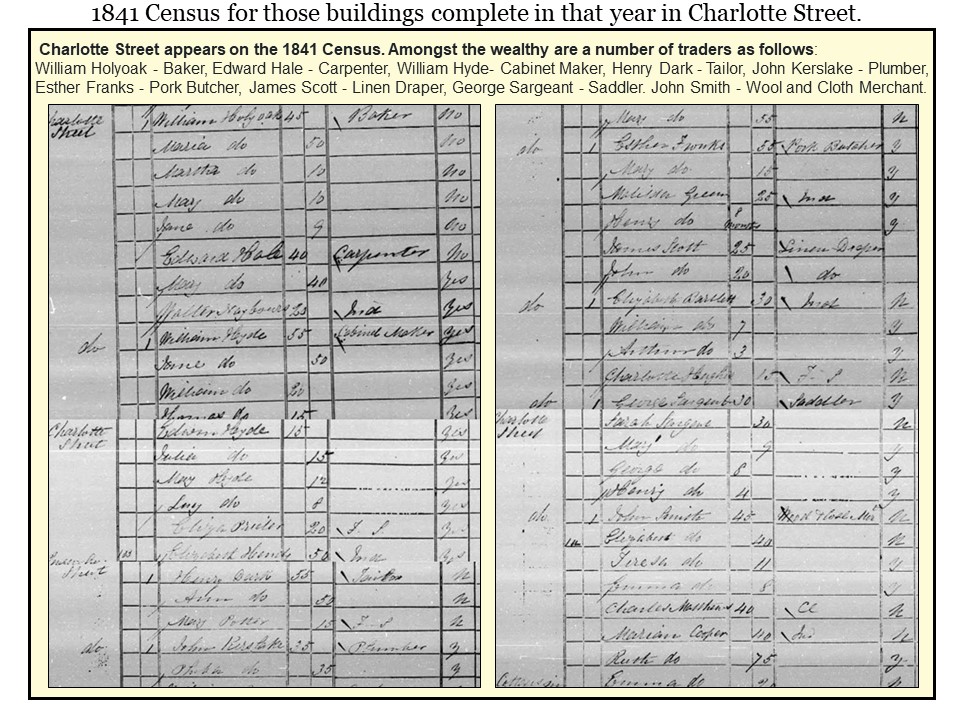 1841 Census for those buildings complete in that year in Charlotte Street.
Charlotte Street appears on the 1841 Census. Amongst the wealthy are a number of traders as follows:
William Holyoak - Baker, Edward Hale - Carpenter, William Hyde- Cabinet Maker, Henry Dark - Tailor, John Kerslake - Plumber,
Esther Franks - Pork Butcher, James Scott - Linen Draper, George Sargeant - Saddler. John Smith - Wool and Cloth Merchant.
Charlotte Street 1 William Holyoak 45 Baker No
Maria do 50 No
Martha do 10 No
Mary do 10 No
Jane do 9 No
Edward Hale 40 Carpenter No
Mary do 40 Yes
Walter 25 Ind Yes
do 1 William Hyde 55 Cabinet Maker Yes
Jane do 50 Yes
William do 20 Yes
Thomas do 15 Yes
Charlotte Street Edwin Hyde 15 Yes
Julia do 15 Yes
Mary Hyde 12 Yes
Lucy do 8 Yes
Eliza 20 F. S Yes
Elizabeth 50 Ind Yes
Street 1 Henry Dark 55 Tailor N
Ann do 50 N
Mary Potter 15 F. S N
do 1 John Kerslake 35 Plumber Y
do 35 Y
Mary do 35 N
do 1 Esther Franks 55 Pork Butcher Y
Mary do 15 Y
Green 25 Ind Y
Henry do 8 months Y
James Scott 25 Linen Draper
John do 20 do
do 1 Elizabeth Bartlett 30 Ind N
William do 7 Y
Arthur do 3 Y
Charlotte 15 F. S N
do 1 George Sargent 30 Saddler Y
Charlotte Street Sarah 30 N
Mary do 9 Y
George do 8 Y
Henry do 4 Y
do 1 John Smith 45 N
Elizabeth do 40 N
Teresa do 11 Y
Emma do 8 Y
Charles Matthews 40 Cl N
Marian Cooper 40 Ind N
Ruth do 75 Y
Emma do